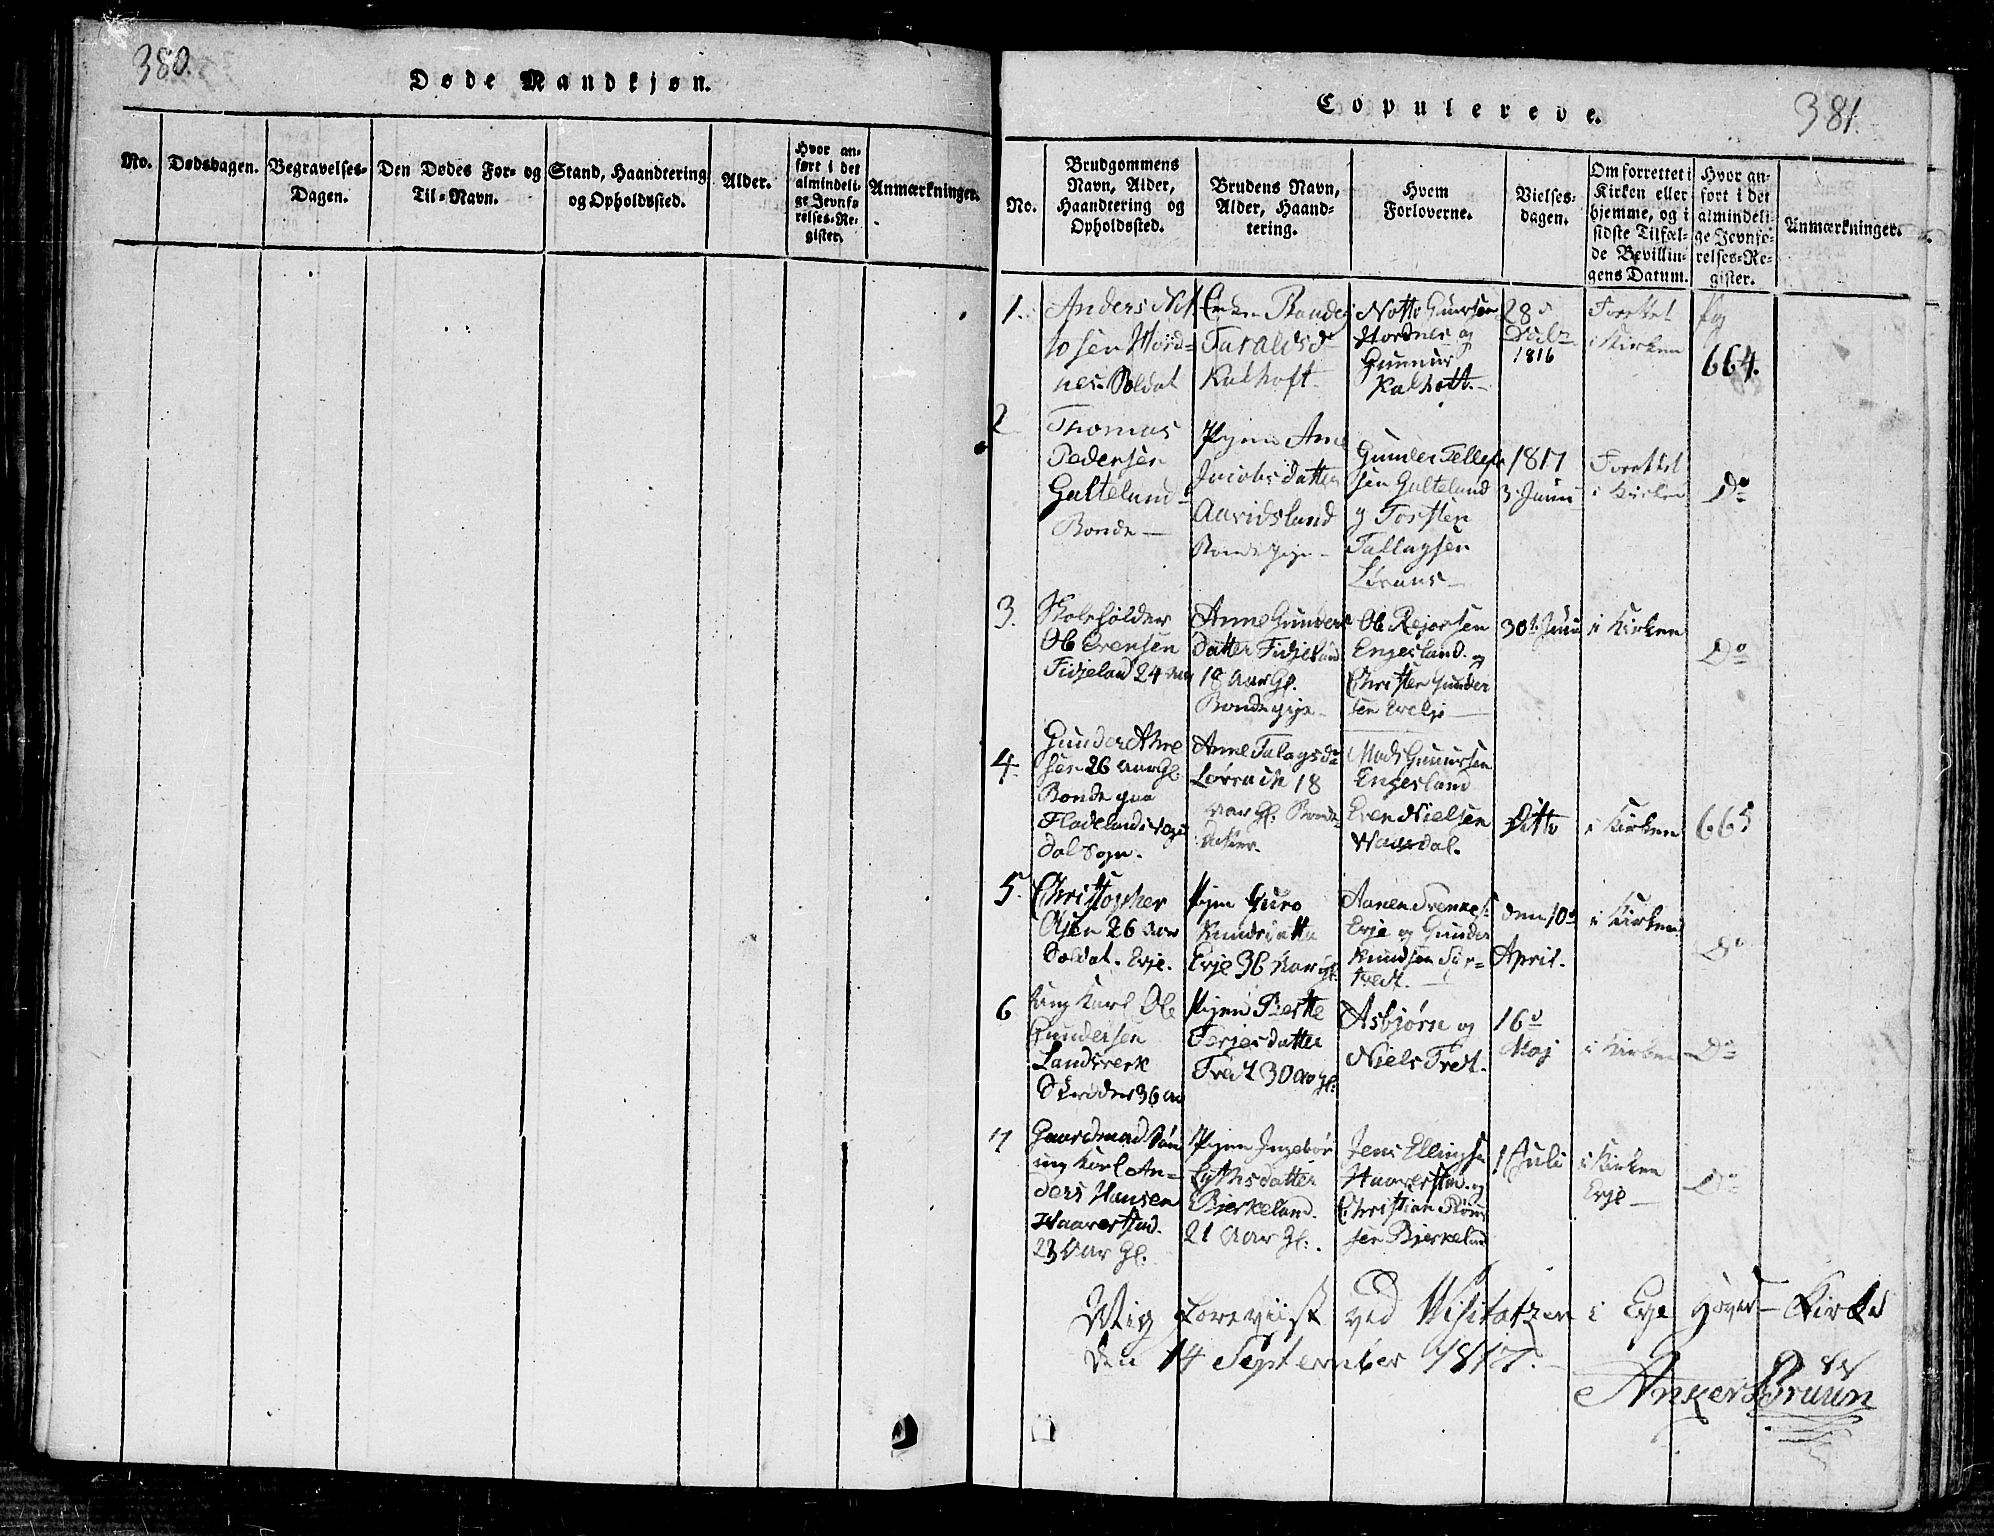 380.
Døde Mandkjøn.
No.
Dødsdagen.
Begravelses-
Dagen.
Den Dødes For- og
Til-Navn.
Stand, Haandtering
og Opholdssted.
Alder.
Hvor an-
ført i det
almindeli-
ge Jevnfø-
relses-Re-
gister.
Anmærkninger.
Copulerede.
381.
No.
Brudgommens
Navn, Alder,
Haandtering og
Opholdssted.
Brudens Navn,
Alder, Haand-
tering.
Hvem
Forloverne.
Vielses-
dagen.
Om forrettet i
Kirken eller
hjemme, og i
sidste Tilfæl-
de Bevillin-
gens Datum.
Hvor an-
ført i det
almindeli-
ge Jevnfø-
relses-Re-
gister.
Anmærkninger.
1.
Anders Not
to sen Hord-
nes. Soldat
Taraldsd
Kalhoft
Notto
Hordnes og
Gunnur
Kalhott.
28
1816
i Kirken
Pag
664.
2
Thomas
Pedersen
Galteland
Bonde
Pigen Ane
Jacobsdatter
Aavidsland
Gunder Tellef
sen Galteland
og Torsten
Tallagsen
1817
3. Junii
i Kirken
Do
3.
Skoleholder
Ole Evensen
Fidjeland 24 Aar
Anne Gunders
datter Fidjeland
18 Aar Gl.
Bondepige
Ole Rejersen
Engesland og
Christen Gunder
sen
30t. Juni
i Kirken
Do
4.
Gunder
sen 26 Aar Gl
Bonde paa
Fladeland
dal Sogn.
Anne Talagsdr
18
Aar gl. Bonde-
datter.
Mads
Engesland
Even Nielsen
Waasdal.
Ditto
i Kirken
665
5.
Christopher
Olsen 26 Aar
Soldat. Evje.
Pigen Guro
Knudsdatter
Evje 36 Aar gl.
Aanen
Evje og Gunder
Knudsen
den 10d
April.
i Kirken
Do
6
Ung Karl Ole
Gundersen
Landsverk
Skræder 36 Aar
Pigen Berthe
Terjesdatter
Tredt 30 Aar gl:
Asbjørn og
Niels Tredt.
16d
Maj
i Kirken
Do
7
Gaardmand Søn
ung Karl An-
ders Hansen
Haaverstad.
23 Aar Gl.
Pigen Ingebor
Bjerkeland.
21 Aar Gl.
Jens Ellingsen
Haaverstad og
Christian
sen Bjerkeland
1 Juli
i Kirken
Evje
Do
Mig foreviist ved Visitatzen i Evje Hoved Kirke
den 14 September 1817.
Anker Bruun